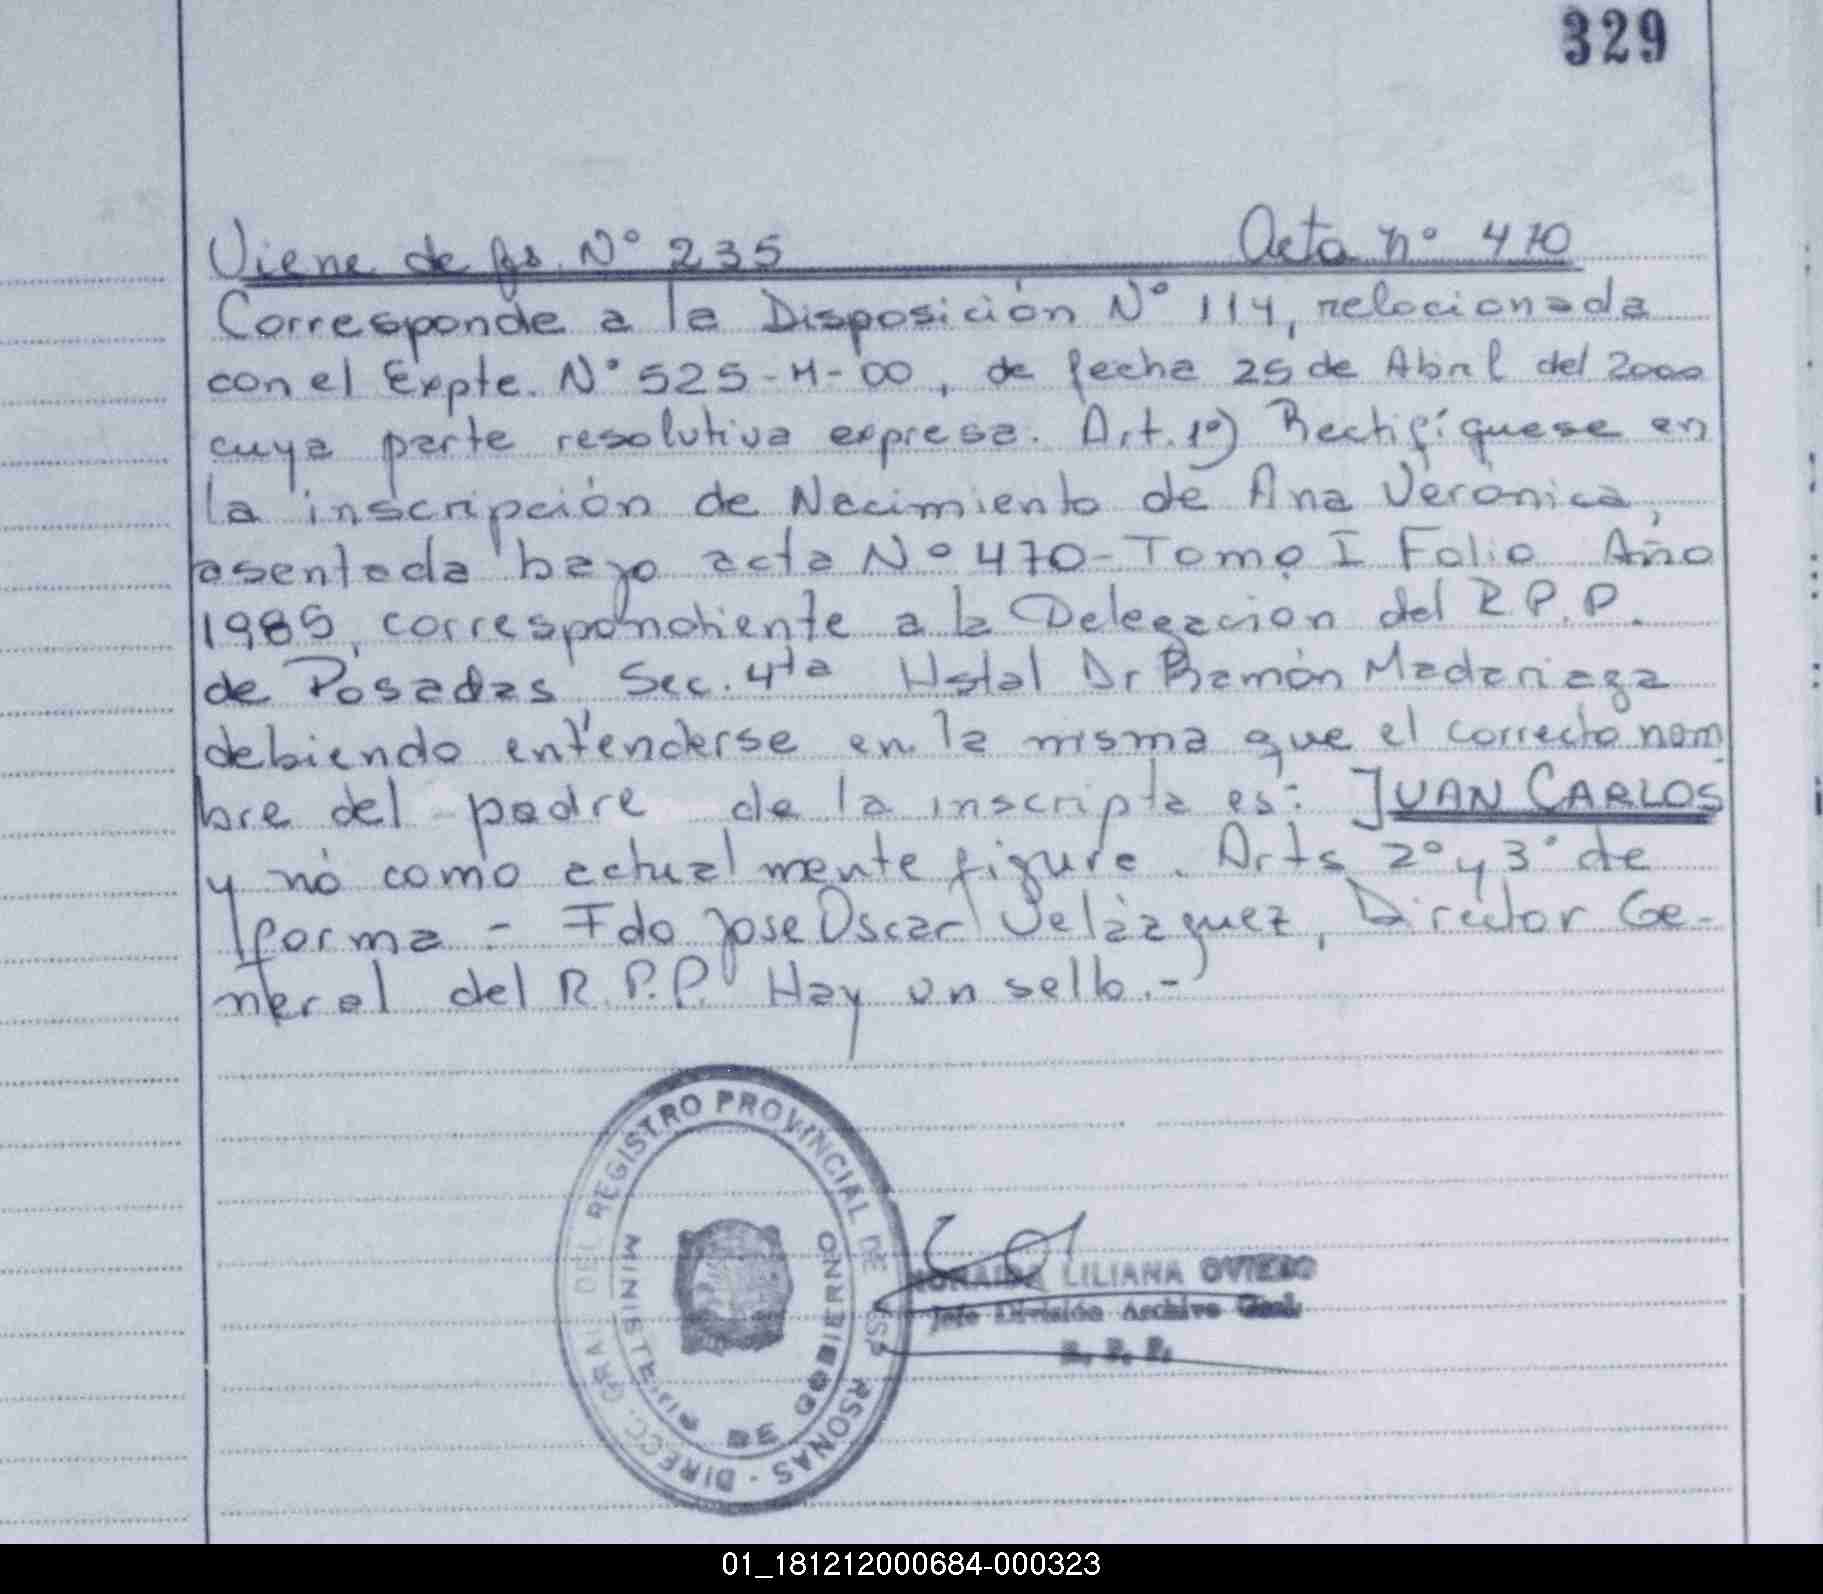 329
Viene de fs. Nº 235 Acta nº 470
Corresponde a la Disposición Nº 114, relacionada
con el Expte. Nº 525-M-00, de fecha 25 de Abril del 2000
cuya parte resolutiva expresa. Art. 1º) Rectifíquese en
la inscripción de Nacimiento de Ana Verónica,
asentada bajo acta Nº 470 - Tomo I Folio Año
1985, correspondiente a la Delegación del R.P.P.
de Posadas Sec. 4ta Hstal Dr Ramón Madariaga
debiendo entenderse en la misma que el correcto nom
bre del padre de la inscripta es: JUAN CARLOS
y no como actualmente figura. Arts 2º y 3º de
forma - Fdo Jose Oscar Velázquez, Director Ge-
neral del R.P.P. Hay un sello.-
DIRECC. GRAL. DEL REGISTRO PROVINCIAL DE
PERSONAS -
MINISTERIO DE GOBIERNO
LILIANA OVIEDO
Jefe División Archivo Gral.
R. P. P.
01_181212000684-000323